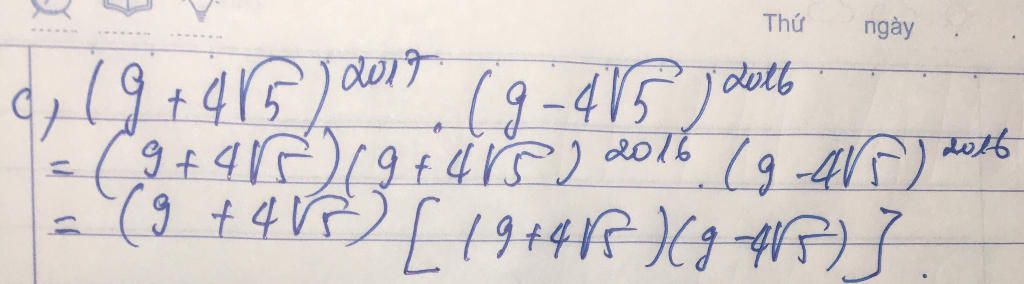 Thứ ngày
c, (9 + 4√5)^2017 . (9 - 4√5)^2016
= (9 + 4√5)(9 + 4√5)^2016 . (9 - 4√5)^2016
= (9 + 4√5) [(9 + 4√5)(9 - 4√5)] .